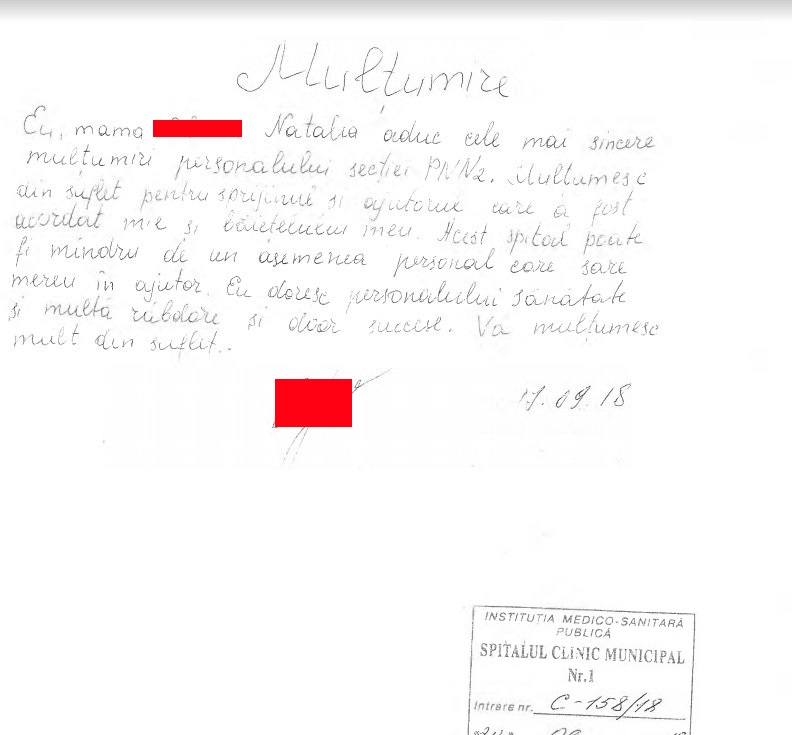 Mulțumire
Eu, mama Natalia aduc cele mai sincere
mulțumiri personalului secției PNN2. Mulțumesc
din suflet pentru sprijinul si ajutorul care a fost
acordat mie si băiețelului meu. Acest spital poate
fi mindru de un asemenea personal care sare
mereu în ajutor. Eu doresc personalului sănătate
și multă răbdare și doar succese. Vă mulțumesc
mult din suflet..
17.09.18
INSTITUȚIA MEDICO-SANITARĂ
PUBLICĂ
SPITALUL CLINIC MUNICIPAL
Nr.1
Intrare nr. C-158/18